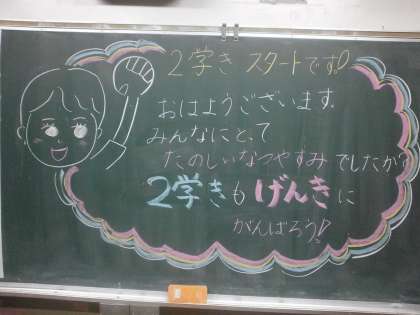 2学き スタートです!
おはようございます.
みんなにとって
たのしいなつやすみでしたか?
2学きもげんきに
がんばろう!